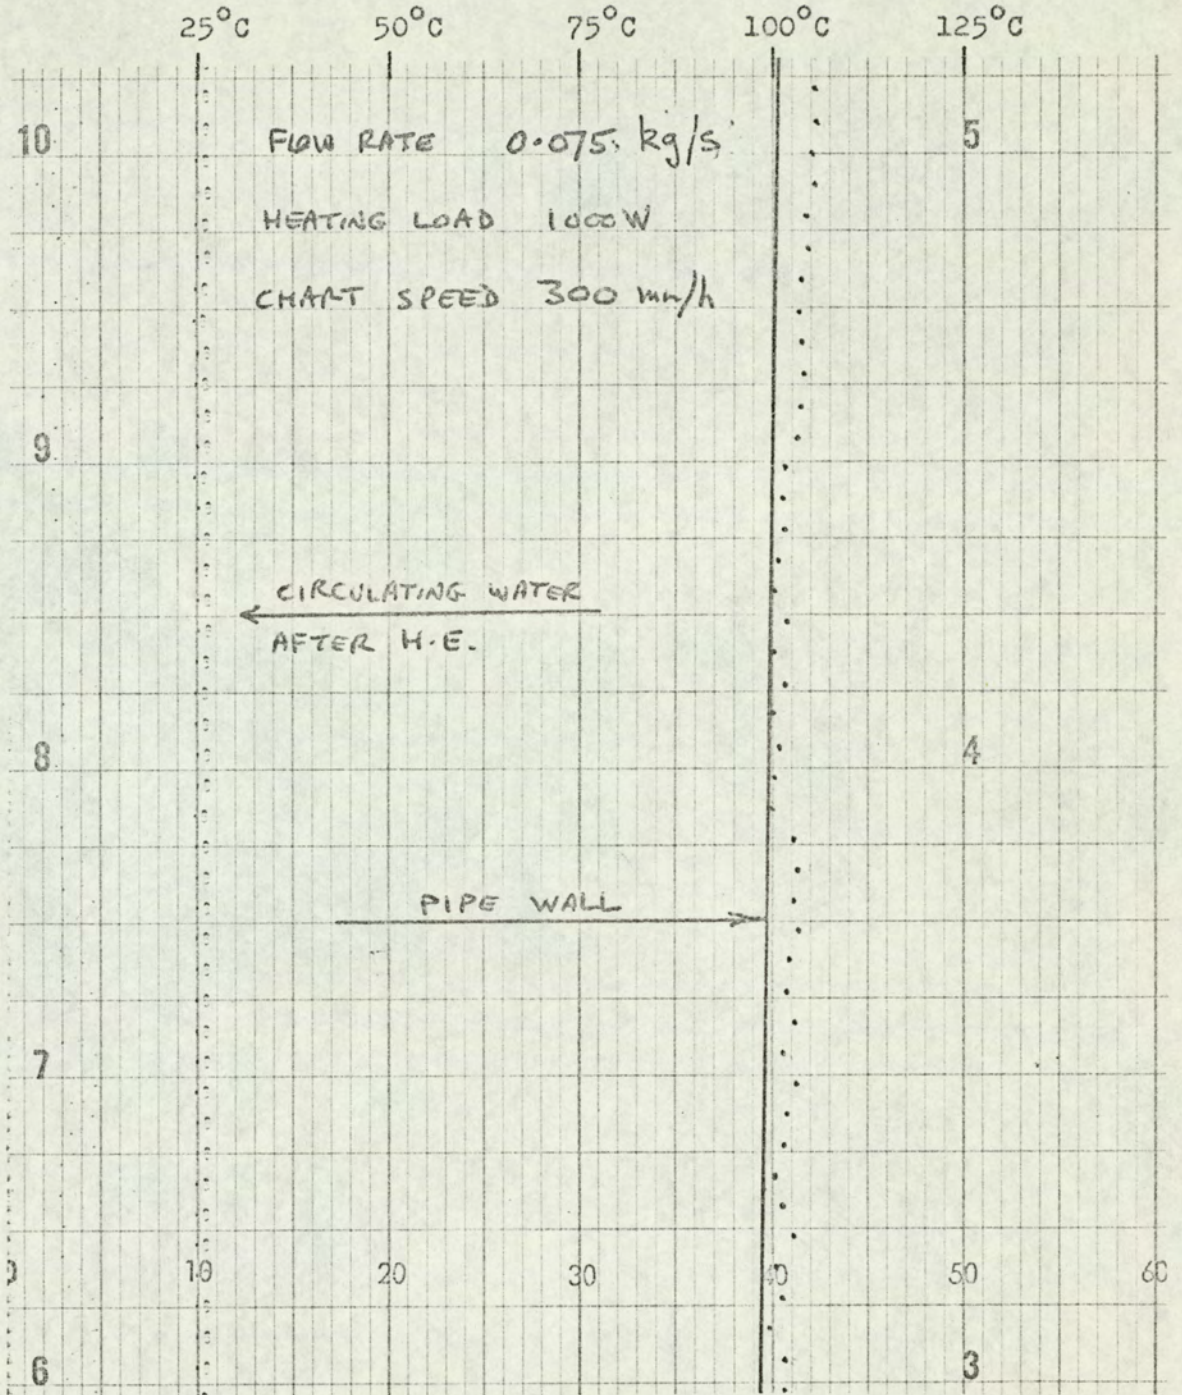 25°C 50°C 75°C 100°C 125°C
10 5
FLOW RATE 0.075 kg/s
HEATING LOAD 1000W
CHART SPEED 300 mm/h
9
CIRCULATING WATER
AFTER H.E.
8 4
PIPE WALL
7
0 10 20 30 40 50 60
6 3